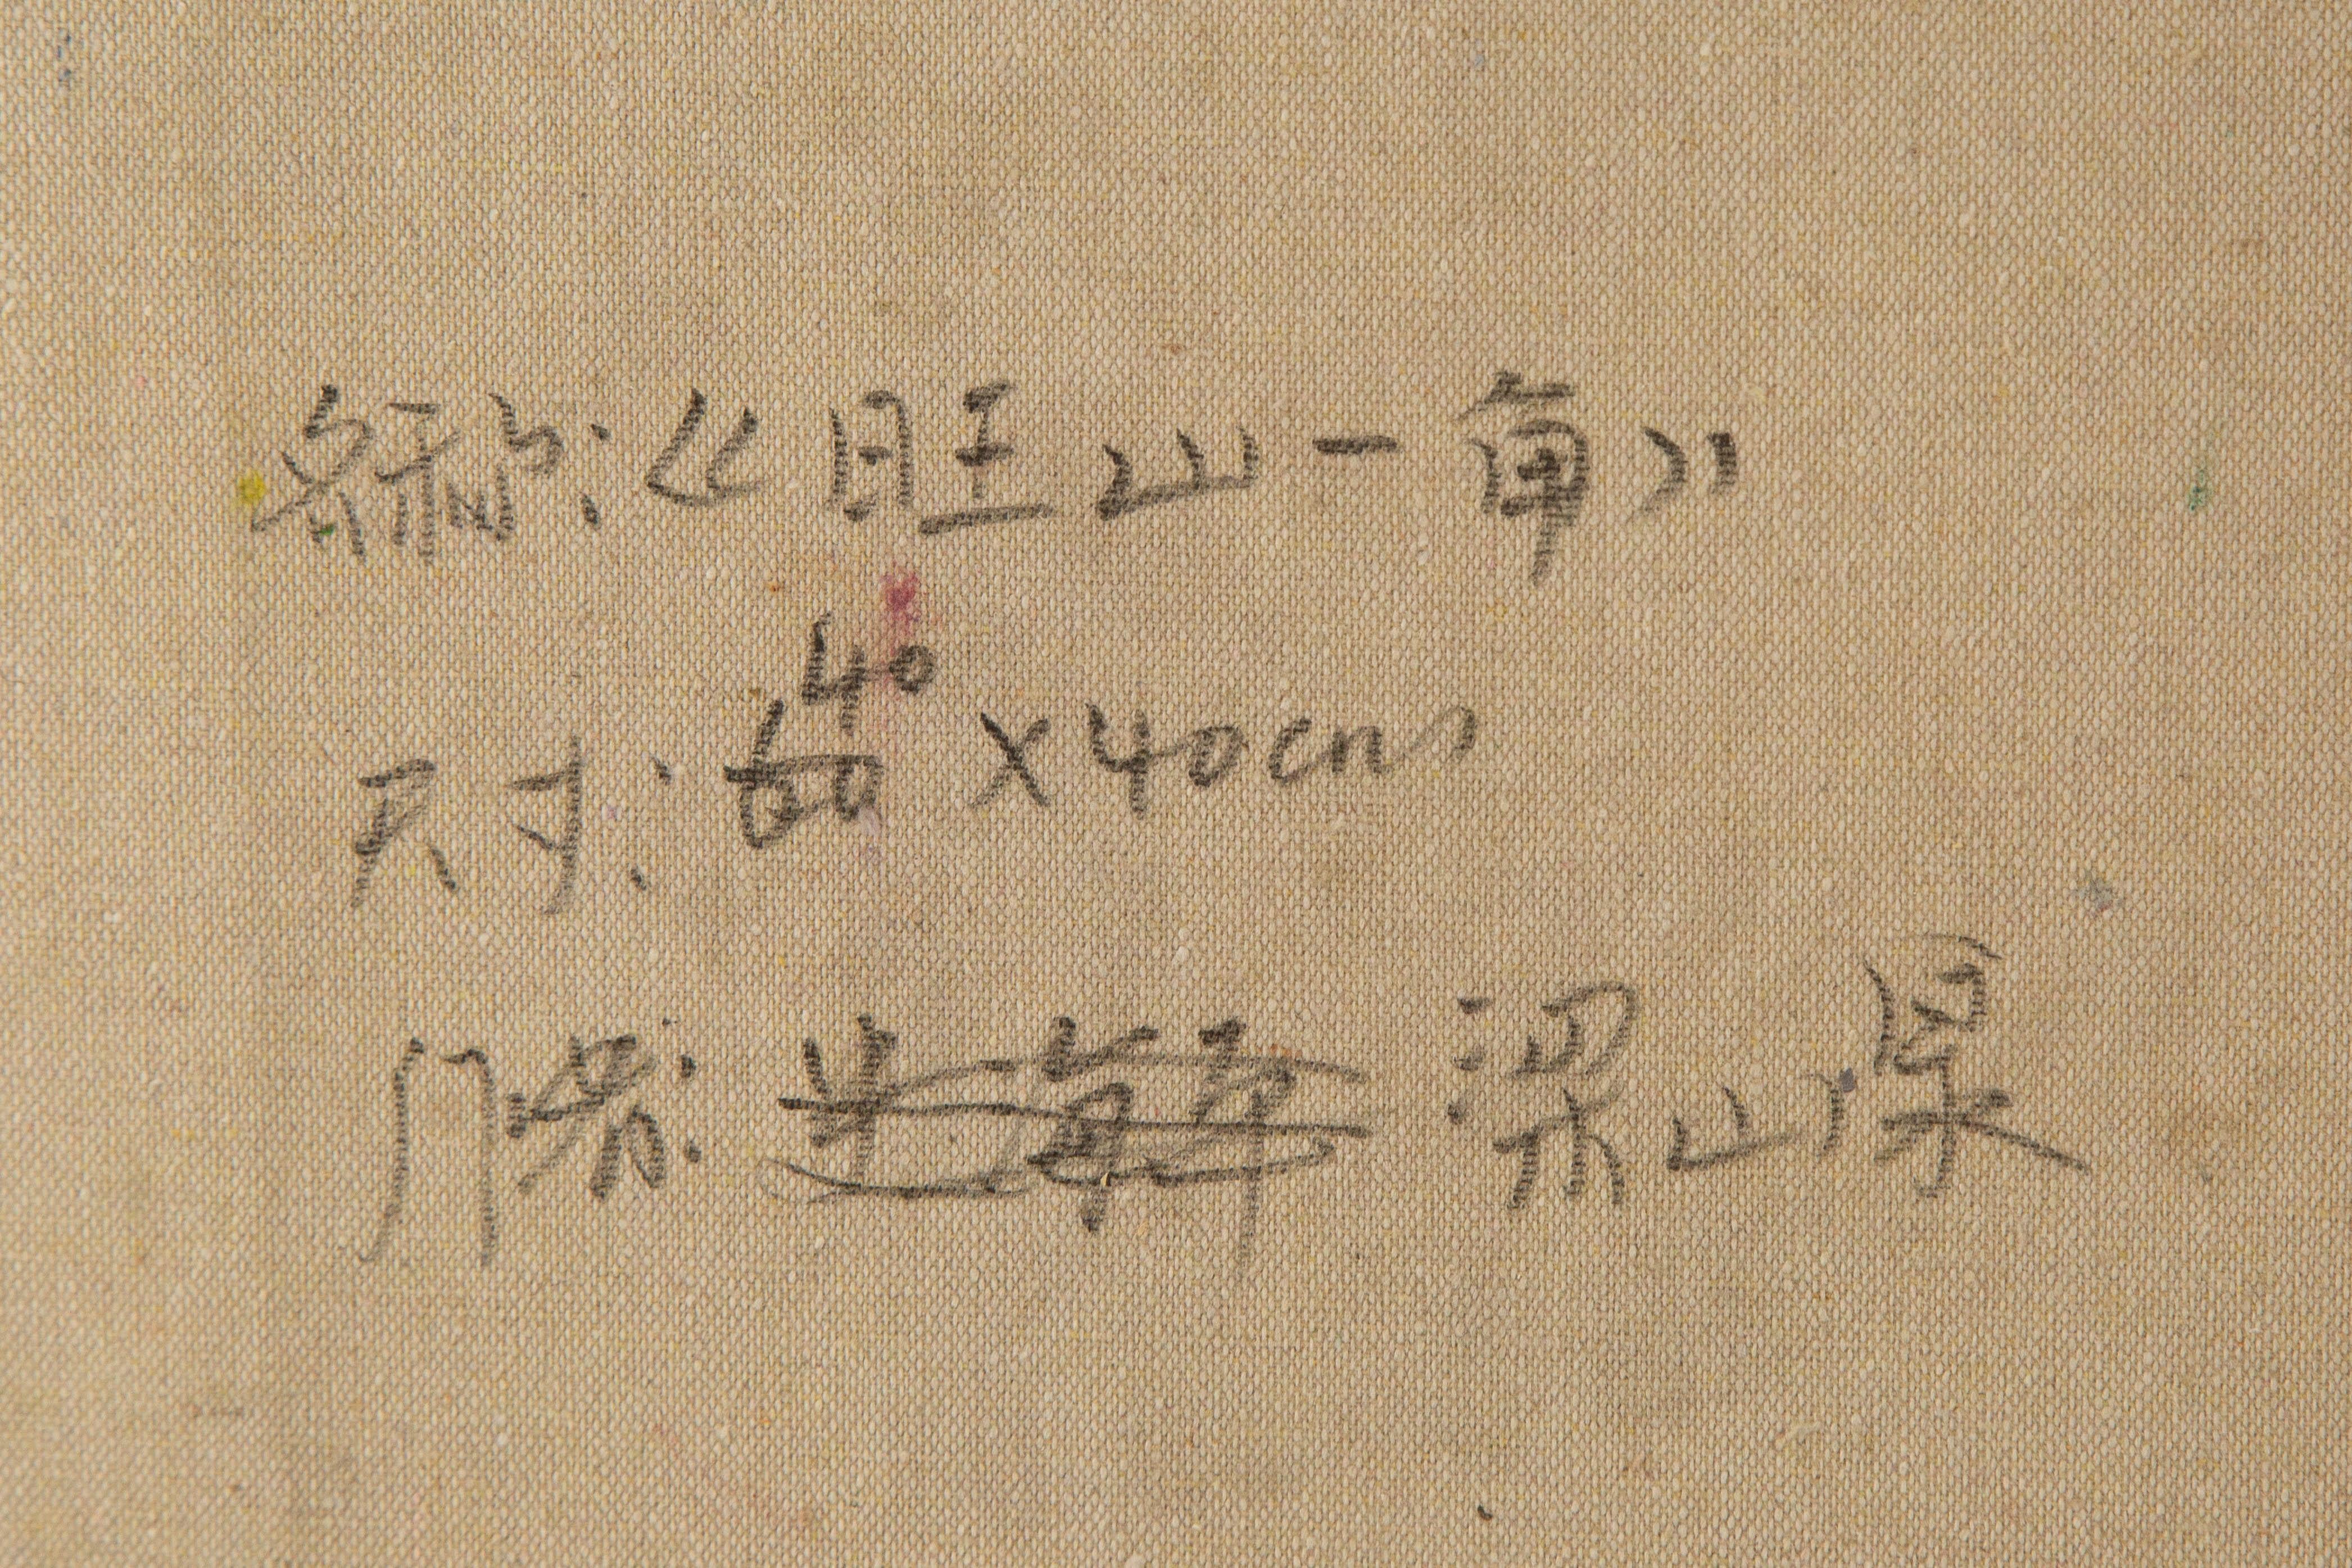 名称:《旺山一角》
尺寸: 60 40 X40cm
作者: 梁山